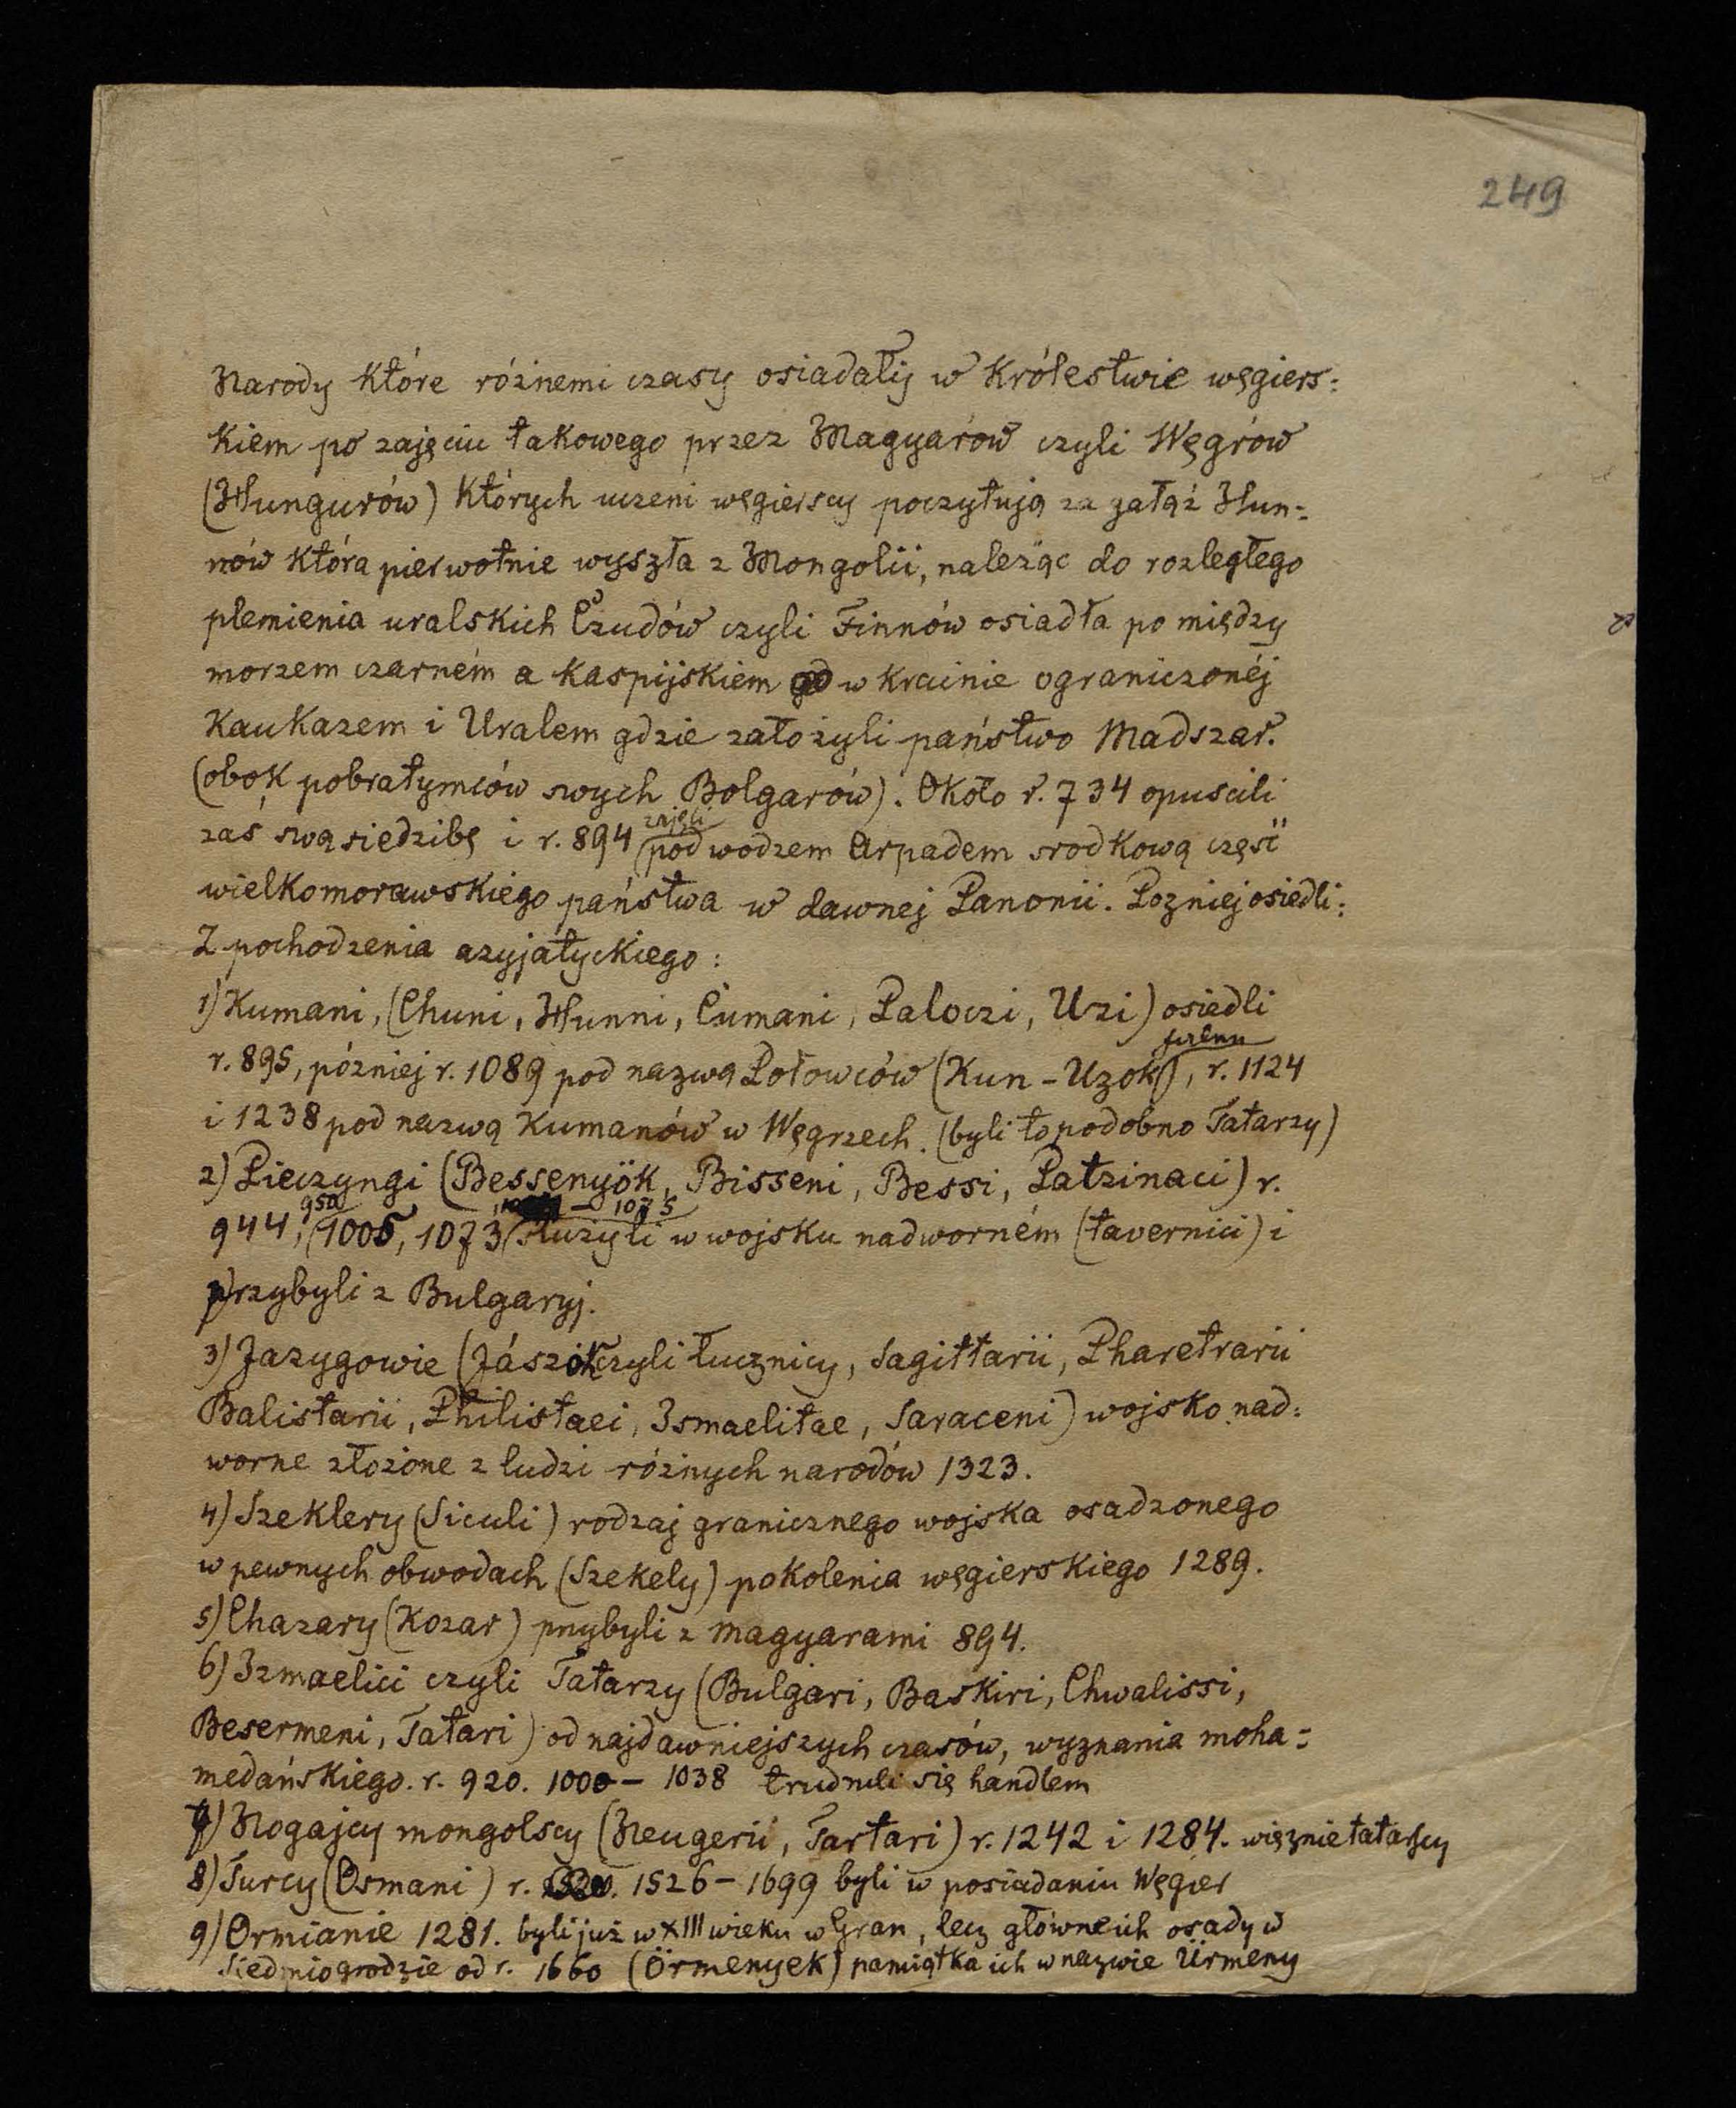 249
Narody które róznemi czasy osiadały w Królestwie węgiers:
kiem po zajęciu takowego przez Magyarów czyli Węgrów
(Hungurów) których uczeni węgierscy poczytują za gałąź Hun-
nów która pierwotnie wyszła z Mongolii, należąc do rozległego
plemienia uralskich Czudów czyli Finnów osiadła po między
morzem czarném a kaspijskiem w krainie ograniczonéj
Kaukazem i Uralem gdzie założyli państwo Madszar.
(obok pobratymców swych Bolgarów). Około r. 734 opuscili
zajęli
zaś swą siedzibę i r. 894 pod wodzem Arpadem srodkową część
wielkomorawskiego państwa w dawnej Panonii. Pozniej osiedli:
Z pochodzenia azyjatyckiego:
1) Kumani, (Chuni, Hunni, Cumani, Paloczi, Uzi) osiedli
r. 895, później r. 1089 pod nazwą Połowców (Kun-Uzok), r. 1124
i 1238 pod nazwą Kumanów w Węgrzech. (byli to podobno Tatarzy)
2) Pieczyngi (Bessenyök, Bisseni, Bessi, Patzinaci) r.
950 – 1075
944, 1005, 1073 służyli w wojsku nadworném (tavernici) i
przybyli z Bulgaryj.
3) Jazygowie (Jászok czyli łucznicy, Sagittarii, Pharetrarii
Balistarii, Philistaei, Ismaelitae, Saraceni) wojsko nad:
worne złożone z ludzi różnych narodów 1323.
4) Szeklery (Siculi) rodzaj granicznego wojska osadzonego
w pewnych obwodach (Szekely) pokolenia węgierskiego 1289.
5) Chazary (Kozar) przybyli z magyarami 894.
6) Izmaelici czyli Tatarzy (Bulgari, Baskiri, Chwalissi,
Besermeni, Tatari) od najdawniejszych czasów, wyznania moha-
medańskiego. r. 920. 1000 – 1038 trudnili się handlem
7) Nogajcy mongolscy (Neugerii, Tartari) r. 1242 i 1284. więznie tatarscy
8) Turcy (Osmani) r. 1526 – 1699 byli w posiadaniu Węgier
9) Ormianie 1281. byli już w XIII wieku w Gran, lecz główne ich osady w
Siedmiogrodzie od r. 1660 (Örmenyek) pamiątka ich w nazwie Ürmeny